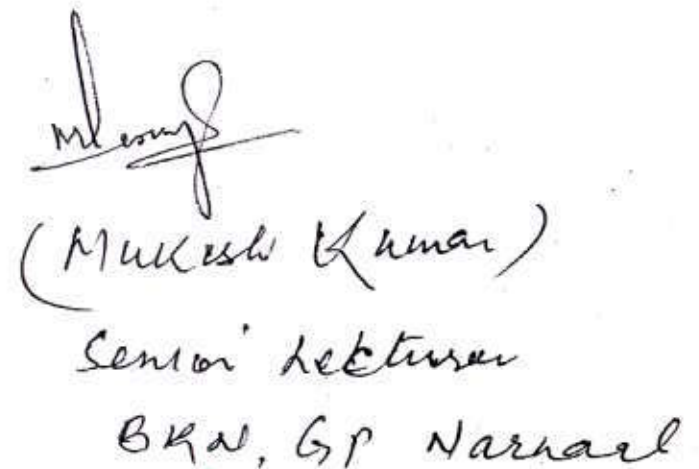 (Mukesh Kumar)
Senior Lecturer
BKN, GP Narnaul